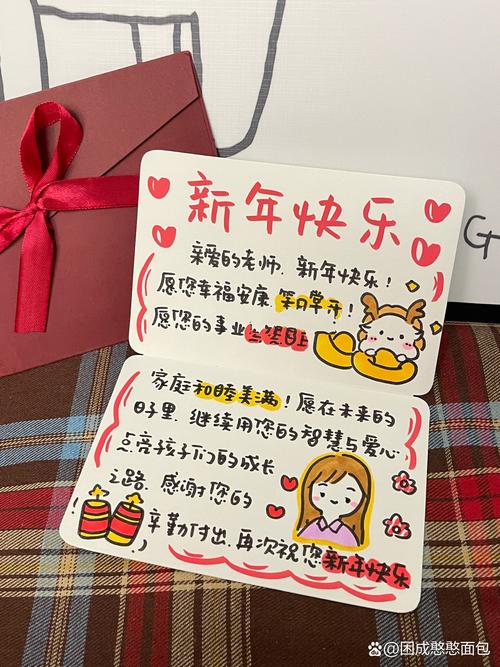 新年快乐
亲爱的老师，新年快乐！
愿您幸福安康，笑口常开！
愿您的事业蒸蒸日上
家庭和睦美满！愿在未来的
日子里，继续用您的智慧与爱心
点亮孩子们的成长
之路，感谢您的
辛勤付出，再次祝您新年快乐
G
@困成憨憨面包